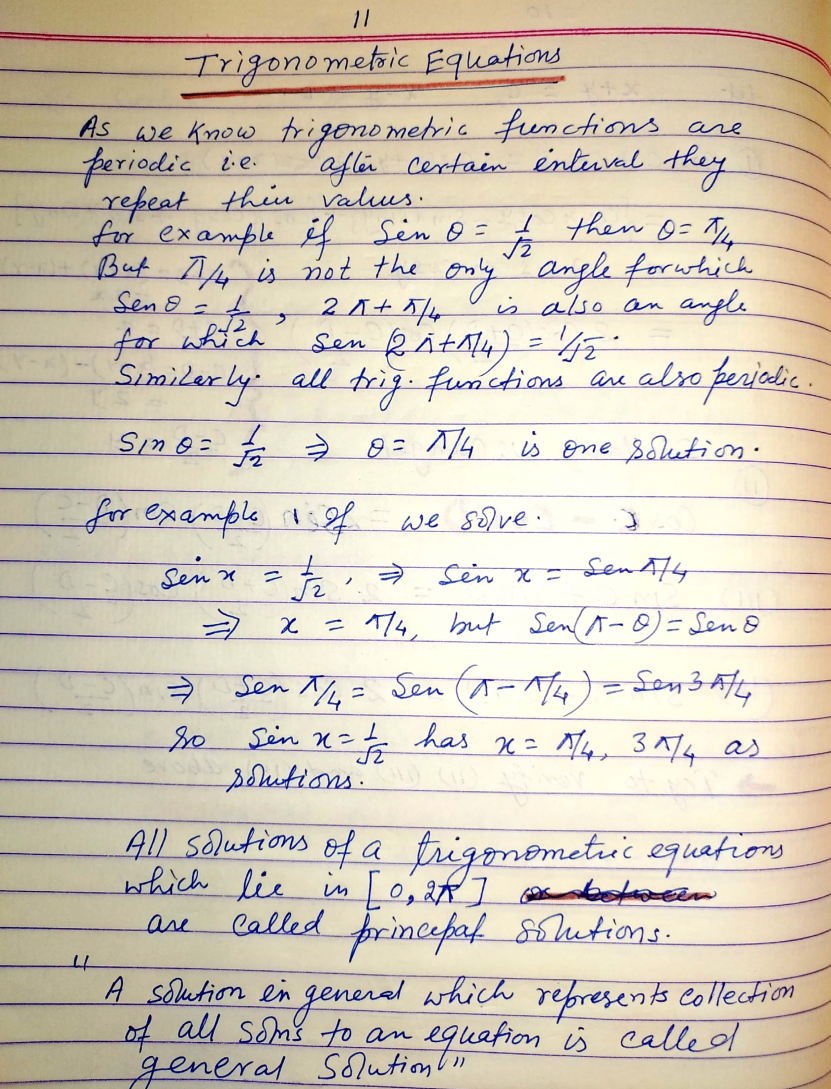 11
Trigonometric Equations
As we know trigonometric functions are
periodic i.e. after certain interval they
repeat their values.
for example if Sin θ = 1/√2 then θ = π/4
But π/4 is not the only angle for which
Sin θ = 1/√2 , 2π + π/4 is also an angle
for which Sin (2π+π/4) = 1/√2.
Similarly. all trig. functions are also periodic.
Sin θ = 1/√2 ⇒ θ = π/4 is one solution.
for example 1 If we solve.
Sin x = 1/√2 , ⇒ Sin x = Sin π/4
⇒ x = π/4, but Sin(π-θ) = Sin θ
⇒ Sin π/4 = Sin (π - π/4) = Sin 3π/4
So Sin x = 1/√2 has x = π/4, 3π/4 as
solutions.
All solutions of a trigonometric equations
which lie in [0, 2π]
are called principal solutions.
"A solution in general which represents collection
of all solns to an equation is called
general solution"